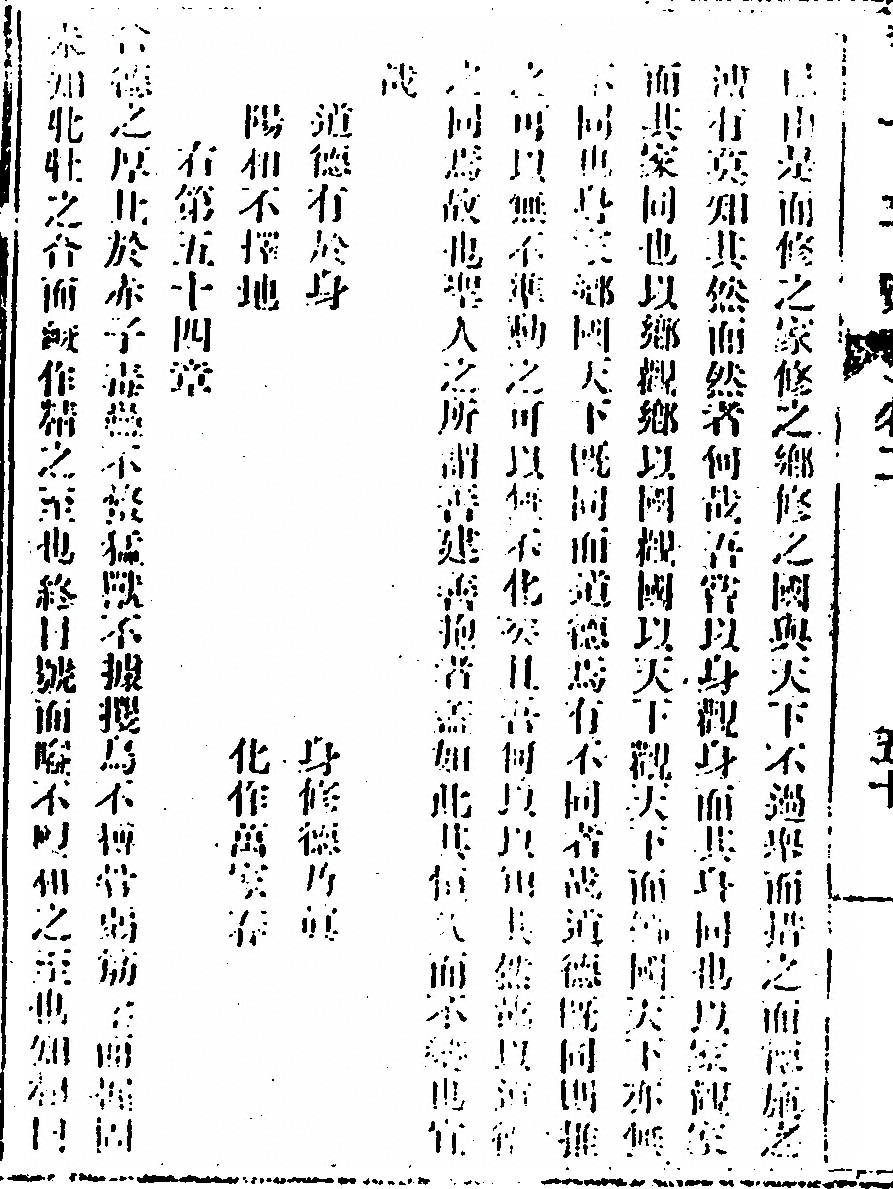 已由是而修之家修之鄉修之國與天下不過舉而措之而德施之
溥有莫知其然而然者何哉吾嘗以身觀身而其身同也以家觀家
而其家同也以鄉觀鄉以國觀國以天下觀天下而鄉國天下亦無
不同也身家鄉國天下既同而道德焉有不同者哉道德既同則推
之可以無不準動之可以無不化矣且吾何以以知其然哉以道德
之同焉故也聖人之所謂善建善抱者蓋如此其恒久而不輟也宜
哉
道德有於身 身修德乃眞
陽和不擇地 化作萬家春
右第五十四章
含德之厚比於赤子毒蟲不螫猛獸不據攫鳥不搏骨弱筋柔而握固
未知牝牡之合而䘒作精之至也終日號而嗌不嗄和之至也知和曰